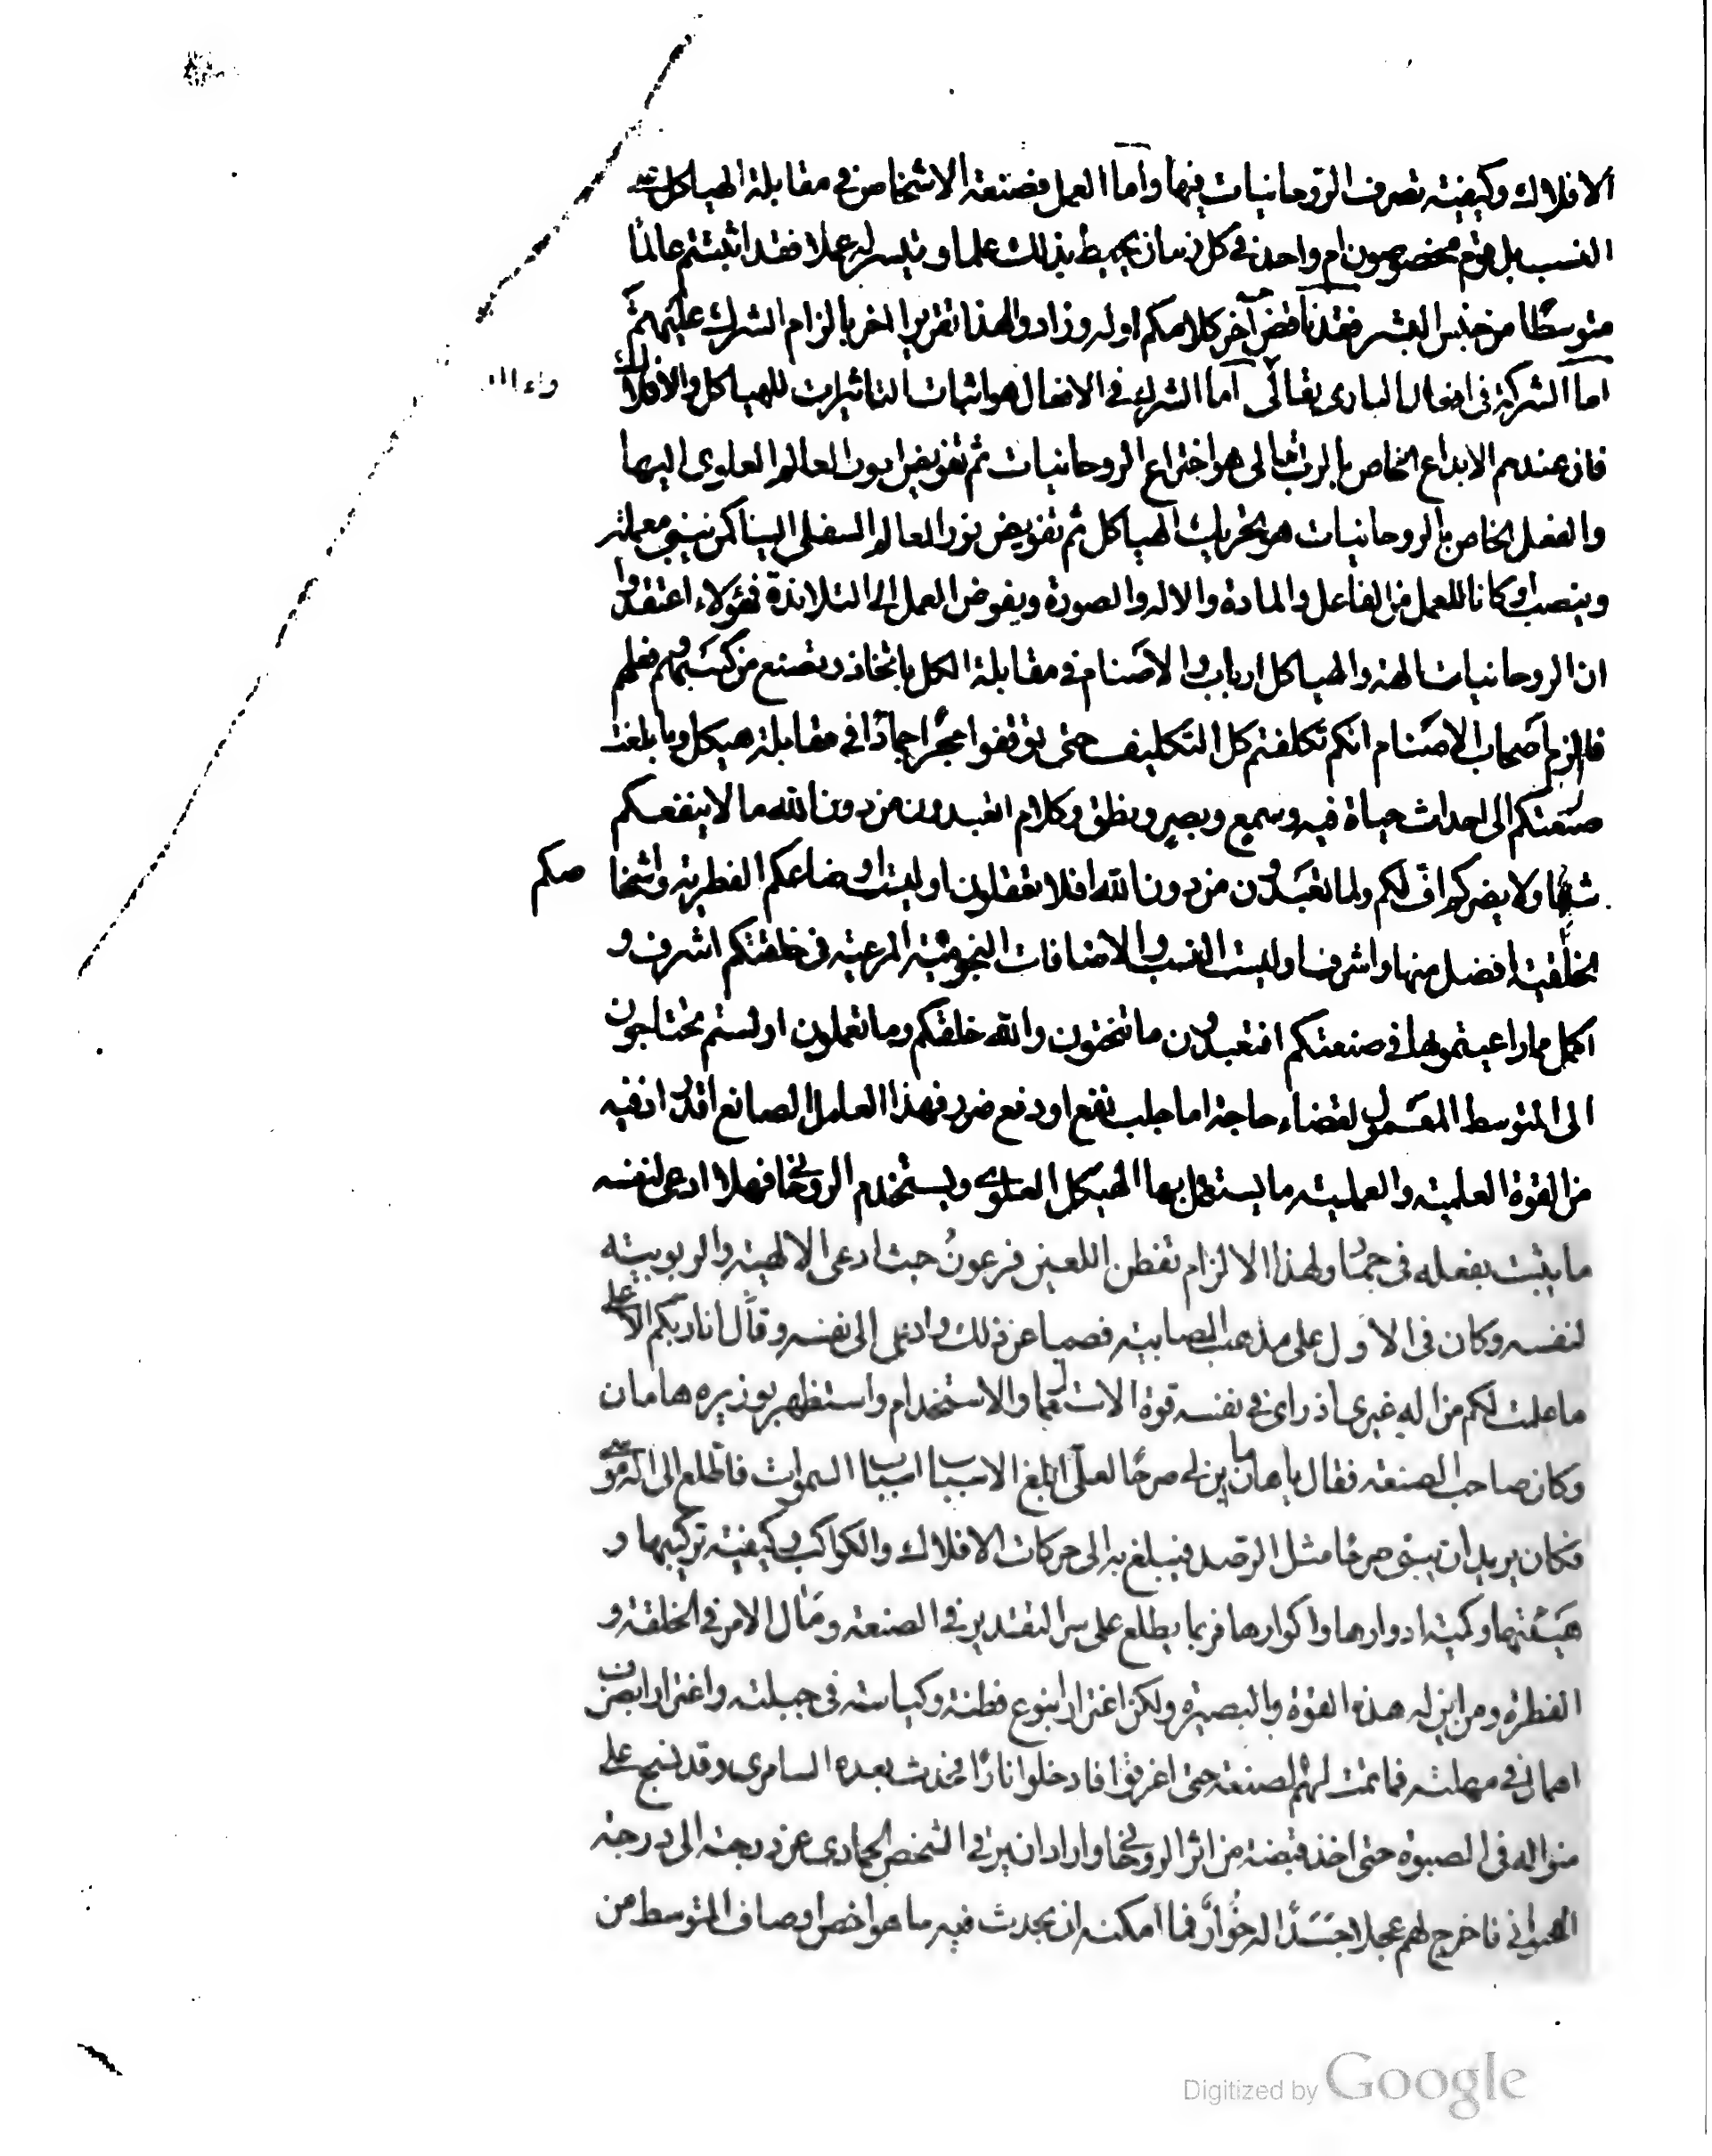 الافلاك وكيفية تصرف الروحانيات فيها واما العمل فصنعة الاشخاص في مقابلة الهياكل على
النسب بل قوم مخصوصون ام واحد في كل زمان يحيط بذلك علما وتيسر له عملا فقد اثبتم عالما
متوسطا من جنس البشر فقد ناقض آخر كلامكم اوله وزادوا لهذا تقريرا اخر بالزام الشرك عليهم
اما الشركة في افعال البارى تعالى اما الشرك في الافعال هو اثبات التاثيرات للهياكل والافلاك
فان عندهم الابداع الخاص بالرب تعالى هو اختراع الروحانيات ثم تفويض امور العالم العلوى اليها
والفعل الخاص بالروحانيات هو تحريك الهياكل ثم تفويض امور العالم السفلى اليها كمن يبنى معملة
وينصب اركانا للعمل من الفاعل والمادة والالة والصورة ويفوض العمل الى التلامذة فهؤلاء اعتقدوا
ان الروحانيات الهة والهياكل ارباب والاصنام في مقابلة الكل باتخاذ وتصنع من كسبهم وفعلهم
فالزم اصحاب الاصنام انكم تكلفتم كل التكليف حتى توقفوا حجرا جمادا في مقابلة هيكل وما بلغت
صنعتكم الى احداث حياة فيه وسمع وبصر ونطق وكلام اتعبدون من دون الله ما لا ينفعكم
شيئا ولا يضركم اف لكم ولما تعبدون من دون الله افلا تعقلون اوليست اوضاعكم الفطرية واشخاصكم
الخلقية افضل منها واشرف اوليست النسب والاضافات النجومية المرعية في خلقتكم اشرف و
اكمل مما راعيتموها في صنعتكم اتعبدون ما تنحتون والله خلقكم وما تعملون اولستم تحتاجون
الى المتوسط المعمول لقضاء حاجة اما جلب نفع او دفع ضر فهذا العامل الصانع اقدر اذ فيه
من القوة العلمية والعملية ما يستعمل بها الهيكل العلوى ويستخدم الروحاني فهلا ادعى لنفسه
ما يثبت بفعله في جماد ولهذا الالزام تفطن اللعين فرعون حيث ادعى الالهية والربوبية
لنفسه وكان في الاول على مذهب الصابية فصبا عن ذلك وادعى الى نفسه وقال انا ربكم الاعلى
ما علمت لكم من اله غيرى اذ راى في نفسه قوة الاستعمال والاستخدام واستظهر بوزيره هامان
وكان صاحب الصنعة فقال يا هامان ابن لى صرحا لعلى ابلغ الاسباب اسباب السموات فاطلع الى اله موسى
فكان يريد ان يبنى صرحا مثل الرصد فيبلغ به الى حركات الافلاك والكواكب وكيفية تركيبها و
هيئتها وكمية ادوارها واكوارها فربما يطلع على سر التقدير في الصنعة ومآل الامر في الخلقة و
الفطرة ومن اين له هذه القوة والبصيرة ولكن اغترارا بنوع فطنة وكياسة في جبلته واغترارا بضرب
اهمال في مهلته فما تمت لهم الصنعة حتى اغرقوا فادخلوا نارا فحدث بعده السامرى وقد نسج على
منواله في الصبوة حتى اخذ قبضة من اثر الروحاني واراد ان يرقى الشخص الجمادى عن درجته الى درجة
الحيواني فاخرج لهم عجلا جسدا له خوار فما امكنه ان يحدث فيه ما هو اخص اوصاف المتوسط من
Digitized by Google